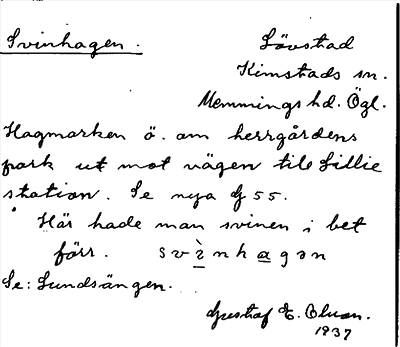 Svinhagen. Lövstad
Kimstads sn.
Memmings hd. Ögl.
Hagmarken ö. om herrgårdens
park ut mot vägen till Lillie
station. Se nya 55.
Här hade man svinen i bet
förr. svìnhagən
Se: Sundsängen.
Gustaf E. Olson.
1937